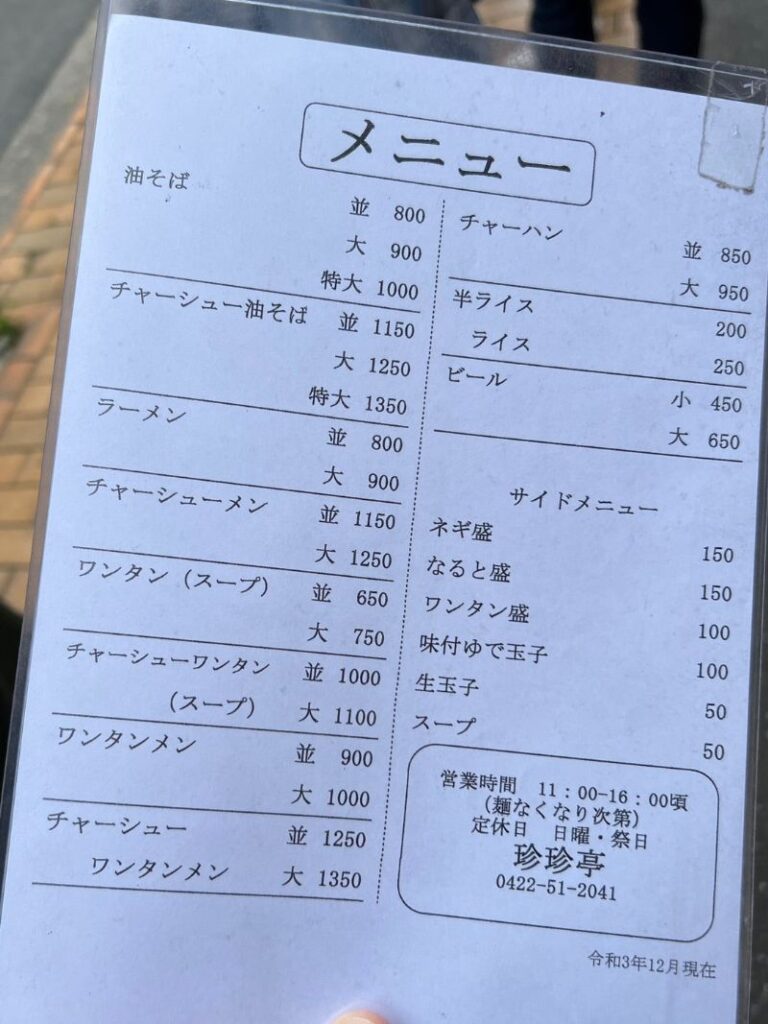 メニュー
油そば
並 800
大 900
特大 1000
チャーシュー油そば 並 1150
大 1250
特大 1350
ラーメン
並 800
大 900
チャーシューメン 並 1150
大 1250
ワンタン（スープ） 並 650
大 750
チャーシューワンタン 並 1000
（スープ） 大 1100
ワンタンメン 並 900
大 1000
チャーシュー 並 1250
ワンタンメン 大 1350
チャーハン
並 850
大 950
半ライス 200
ライス 250
ビール 小 450
大 650
サイドメニュー
ネギ盛 150
なると盛 150
ワンタン盛 100
味付ゆで玉子 100
生玉子 50
スープ 50
営業時間 11：00-16：00頃
（麺なくなり次第）
定休日 日曜・祭日
珍珍亭
0422-51-2041
令和3年12月現在